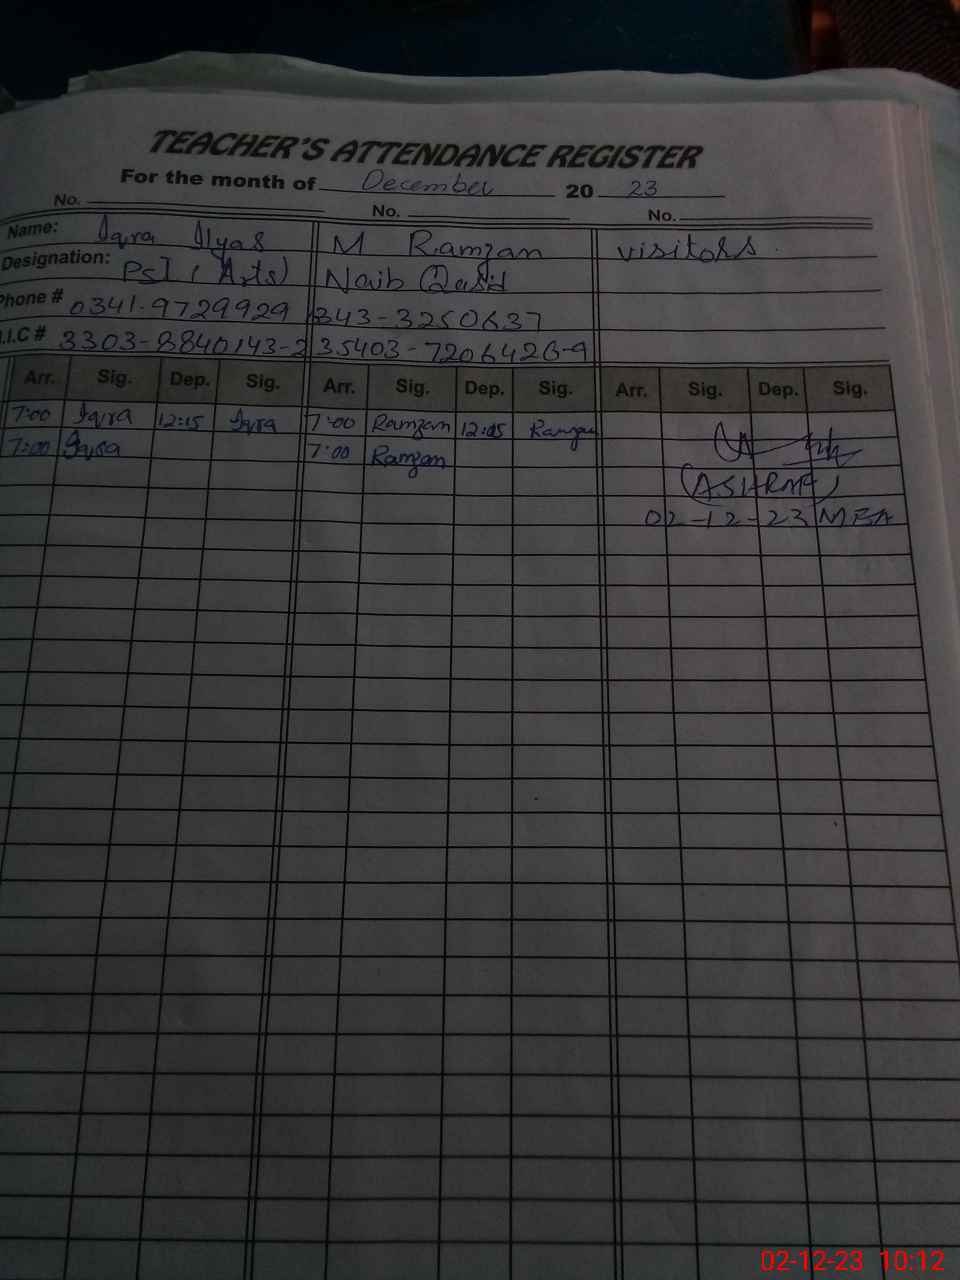 TEACHER'S ATTENDANCE REGISTER
For the month of December 20 23
No. No. No.
Name: Iqra Ilyas M Ramzan visitors.
Designation: PST (Arts) Naib Qasid
Phone # 0341-9729929 343-3250637
.I.C # 3303-8840143-2 35403-7206426-9
Arr. Sig. Dep. Sig. Arr. Sig. Dep. Sig. Arr. Sig. Dep. Sig.
7:00 Iqra 12:15 Iqra 7:00 Ramzan 12:15 Ramzan
7:00 Iqra 7:00 Ramzan
(ASHRAF)
02-12-23 MEA
02-12-23 10:12